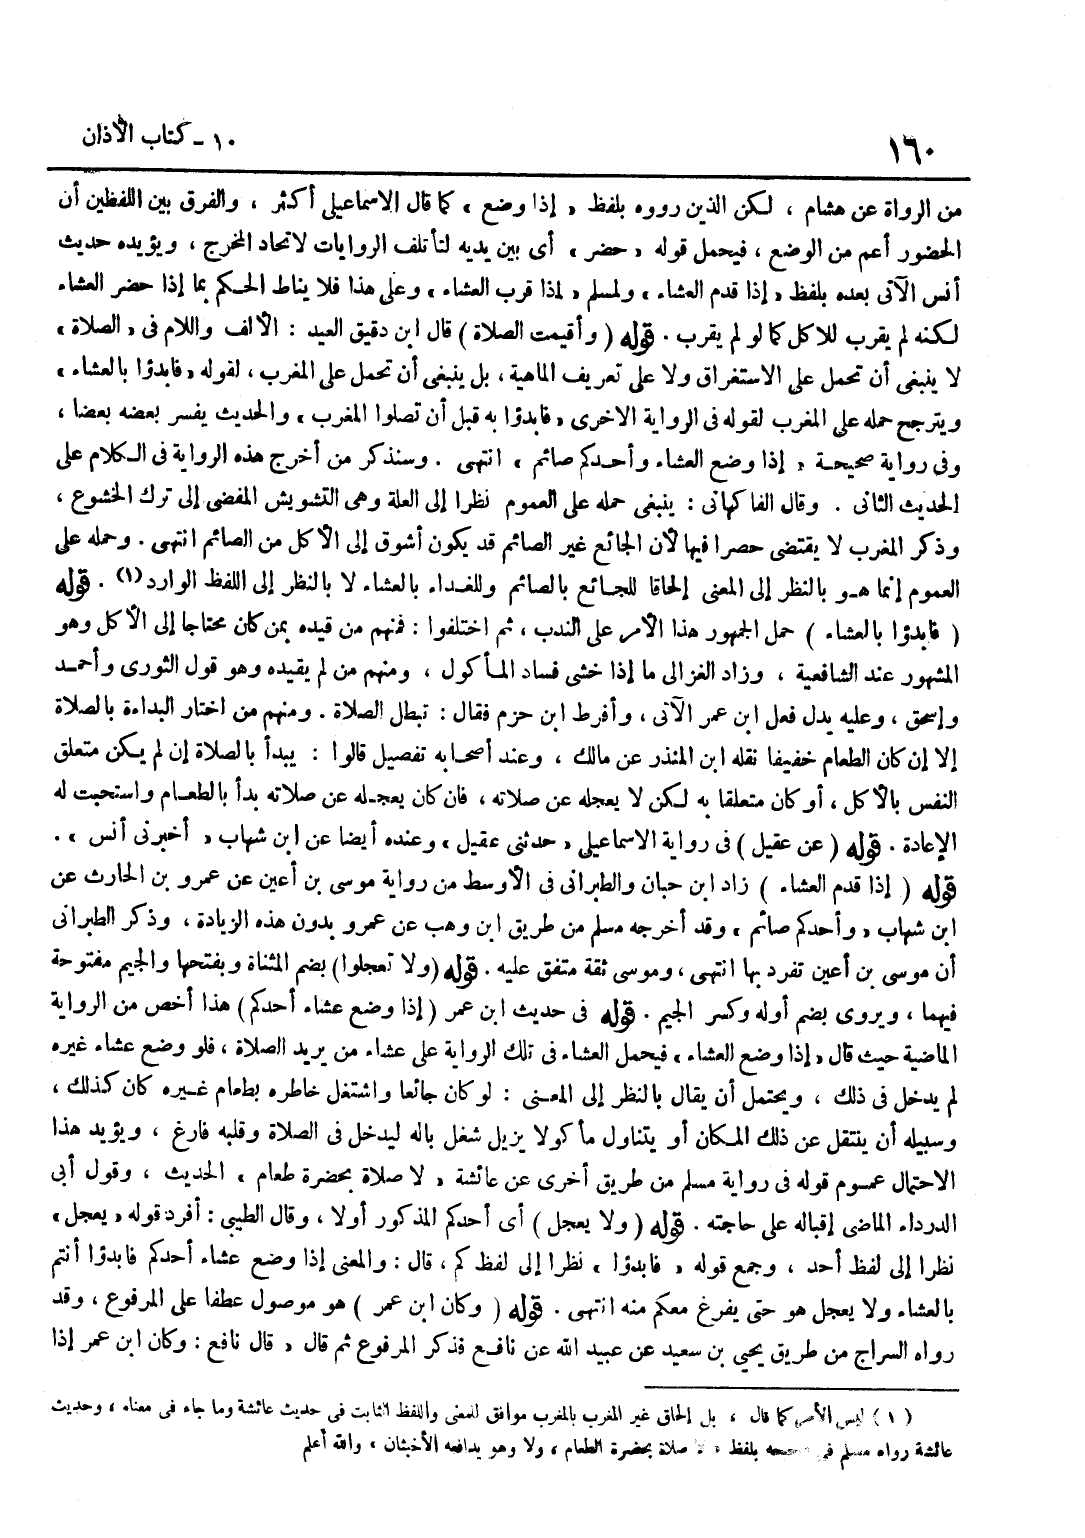 ١٦٠
١٠ - كتاب الأذان
من الرواة عن هشام ، لكن الذين رووه بلفظ « إذا وضع » كما قال الاسماعيلى أكثر ، والفرق بين اللفظين أن
الحضور أعم من الوضع ، فيحمل قوله « حضر » أى بين يديه لتأتلف الروايات لاتحاد المخرج ، ويؤيده حديث
أنس الآتى بعده بلفظ « إذا قدم العشاء » ولمسلم « إذا قرب العشاء » وعلى هذا فلا يناط الحكم بما إذا حضر العشاء
لكنه لم يقرب للاكل كما لو لم يقرب . قوله ( وأقيمت الصلاة ) قال ابن دقيق العيد : الألف واللام فى « الصلاة »
لا ينبغى أن تحمل على الاستغراق ولا على تعريف الماهية ، بل ينبغى أن تحمل على المغرب ، لقوله « فابدؤا بالعشاء »
ويترجح حمله على المغرب لقوله فى الرواية الاخرى « فابدؤا به قبل أن تصلوا المغرب » والحديث يفسر بعضه بعضا ،
وفى رواية صحيحة « إذا وضع العشاء وأحدكم صائم » انتهى . وسنذكر من أخرج هذه الرواية فى الكلام على
الحديث الثانى . وقال الفاكهانى : ينبغى حمله على العموم نظرا إلى العلة وهى التشويش المفضى إلى ترك الخشوع ،
وذكر المغرب لا يقتضى حصرا فيها لأن الجائع غير الصائم قد يكون أشوق إلى الأكل من الصائم انتهى . وحمله على
العموم إنما هو بالنظر إلى المعنى إلحاقا للجائع بالصائم وللغداء بالعشاء لا بالنظر إلى اللفظ الوارد (١) . قوله
( فابدؤا بالعشاء ) حمل الجمهور هذا الأمر على الندب ، ثم اختلفوا : فمنهم من قيده بمن كان محتاجا إلى الأكل وهو
المشهور عند الشافعية ، وزاد الغزالى ما إذا خشى فساد المأكول ، ومنهم من لم يقيده وهو قول الثورى وأحمد
وإسحق ، وعليه يدل فعل ابن عمر الآتى ، وأفرط ابن حزم فقال : تبطل الصلاة . ومنهم من اختار البداءة بالصلاة
إلا إن كان الطعام خفيفا نقله ابن المنذر عن مالك ، وعند أصحابه تفصيل قالوا : يبدأ بالصلاة إن لم يكن متعلق
النفس بالأكل ، أو كان متعلقا به لكن لا يعجله عن صلاته ، فان كان يعجله عن صلاته بدأ بالطعام واستحبت له
الإعادة . قوله ( عن عقيل ) فى رواية الاسماعيلى « حدثنى عقيل » وعنده أيضا عن ابن شهاب « أخبرنى أنس » .
قوله ( إذا قدم العشاء ) زاد ابن حبان والطبرانى فى الأوسط من رواية موسى بن أعين عن عمرو بن الحارث عن
ابن شهاب « وأحدكم صائم » وقد أخرجه مسلم من طريق ابن وهب عن عمرو بدون هذه الزيادة ، وذكر الطبرانى
أن موسى بن أعين تفرد بها انتهى ، وموسى ثقة متفق عليه . قوله (ولا تعجلوا) بضم المثناة وبفتحها والجيم مفتوحة
فيهما ، ويروى بضم أوله وكسر الجيم . قوله فى حديث ابن عمر ( إذا وضع عشاء أحدكم ) هذا أخص من الرواية
الماضية حيث قال « إذا وضع العشاء » فيحمل العشاء فى تلك الرواية على عشاء من يريد الصلاة ، فلو وضع عشاء غيره
لم يدخل فى ذلك ، ويحتمل أن يقال بالنظر إلى المعنى : لو كان جائعا واشتغل خاطره بطعام غيره كان كذلك ،
وسبيله أن ينتقل عن ذلك المكان أو يتناول مأكولا يزيل شغل باله ليدخل فى الصلاة وقلبه فارغ ، ويؤيد هذا
الاحتمال عموم قوله فى رواية مسلم من طريق أخرى عن عائشة « لا صلاة بحضرة طعام » الحديث ، وقول أبى
الدرداء الماضى إقباله على حاجته . قوله ( ولا يعجل ) أى أحدكم المذكور أولا ، وقال الطيبى : أفرد قوله « يعجل »
نظرا إلى لفظ أحد ، وجمع قوله « فابدؤا » نظرا إلى لفظ كم ، قال : والمعنى إذا وضع عشاء أحدكم فابدؤا أنتم
بالعشاء ولا يعجل هو حتى يفرغ معكم منه انتهى . قوله ( وكان ابن عمر ) هو موصول عطفا على المرفوع ، وقد
رواه السراج من طريق يحيي بن سعيد عن عبيد الله عن نافع فذكر المرفوع ثم قال « قال نافع : وكان ابن عمر إذا
( ١ ) ليس الأمر كما قال ، بل إلحاق غير المغرب بالمغرب موافق للمعنى واللفظ الثابت فى حديث عائشة وما جاء فى معناه ، وحديث
عائشة رواه مسلم فى صحيحه بلفظ « لا صلاة بحضرة الطعام ، ولا وهو يدافعه الأخبثان » والله أعلم